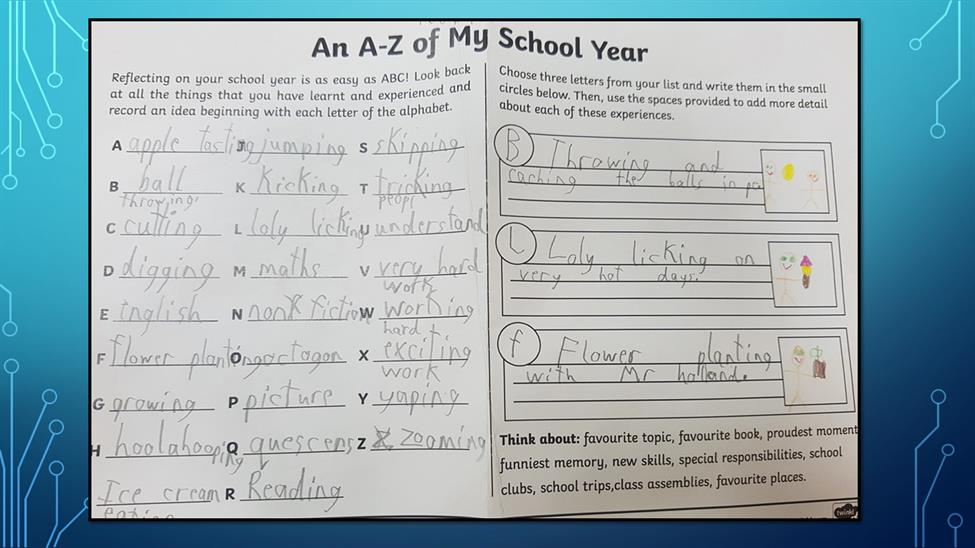 An A-Z of My School Year
Reflecting on your school year is as easy as ABC! Look back
at all the things that you have learnt and experienced and
record an idea beginning with each letter of the alphabet.
A apple tasting
B ball
throwing
C cutting
D digging
E inglish
F flower planting
G growing
H hoolahooping
Ice cream
eating
J jumping
K Kicking
L loly licking
M maths
N non fiction
O octagon
P picture
Q quescens
R Reading
S skipping
T tricking
peopl
U understand
V very hard
work
W working
hard
X exciting
work
Y yaping
Z zooming
Choose three letters from your list and write them in the small
circles below. Then, use the spaces provided to add more detail
about each of these experiences.
B Throwing and
caching the balls in
L Loly licking on
very hot days.
f Flower planting
with Mr holland.
Think about: favourite topic, favourite book, proudest moment
funniest memory, new skills, special responsibilities, school
clubs, school trips,class assemblies, favourite places.
twinkl